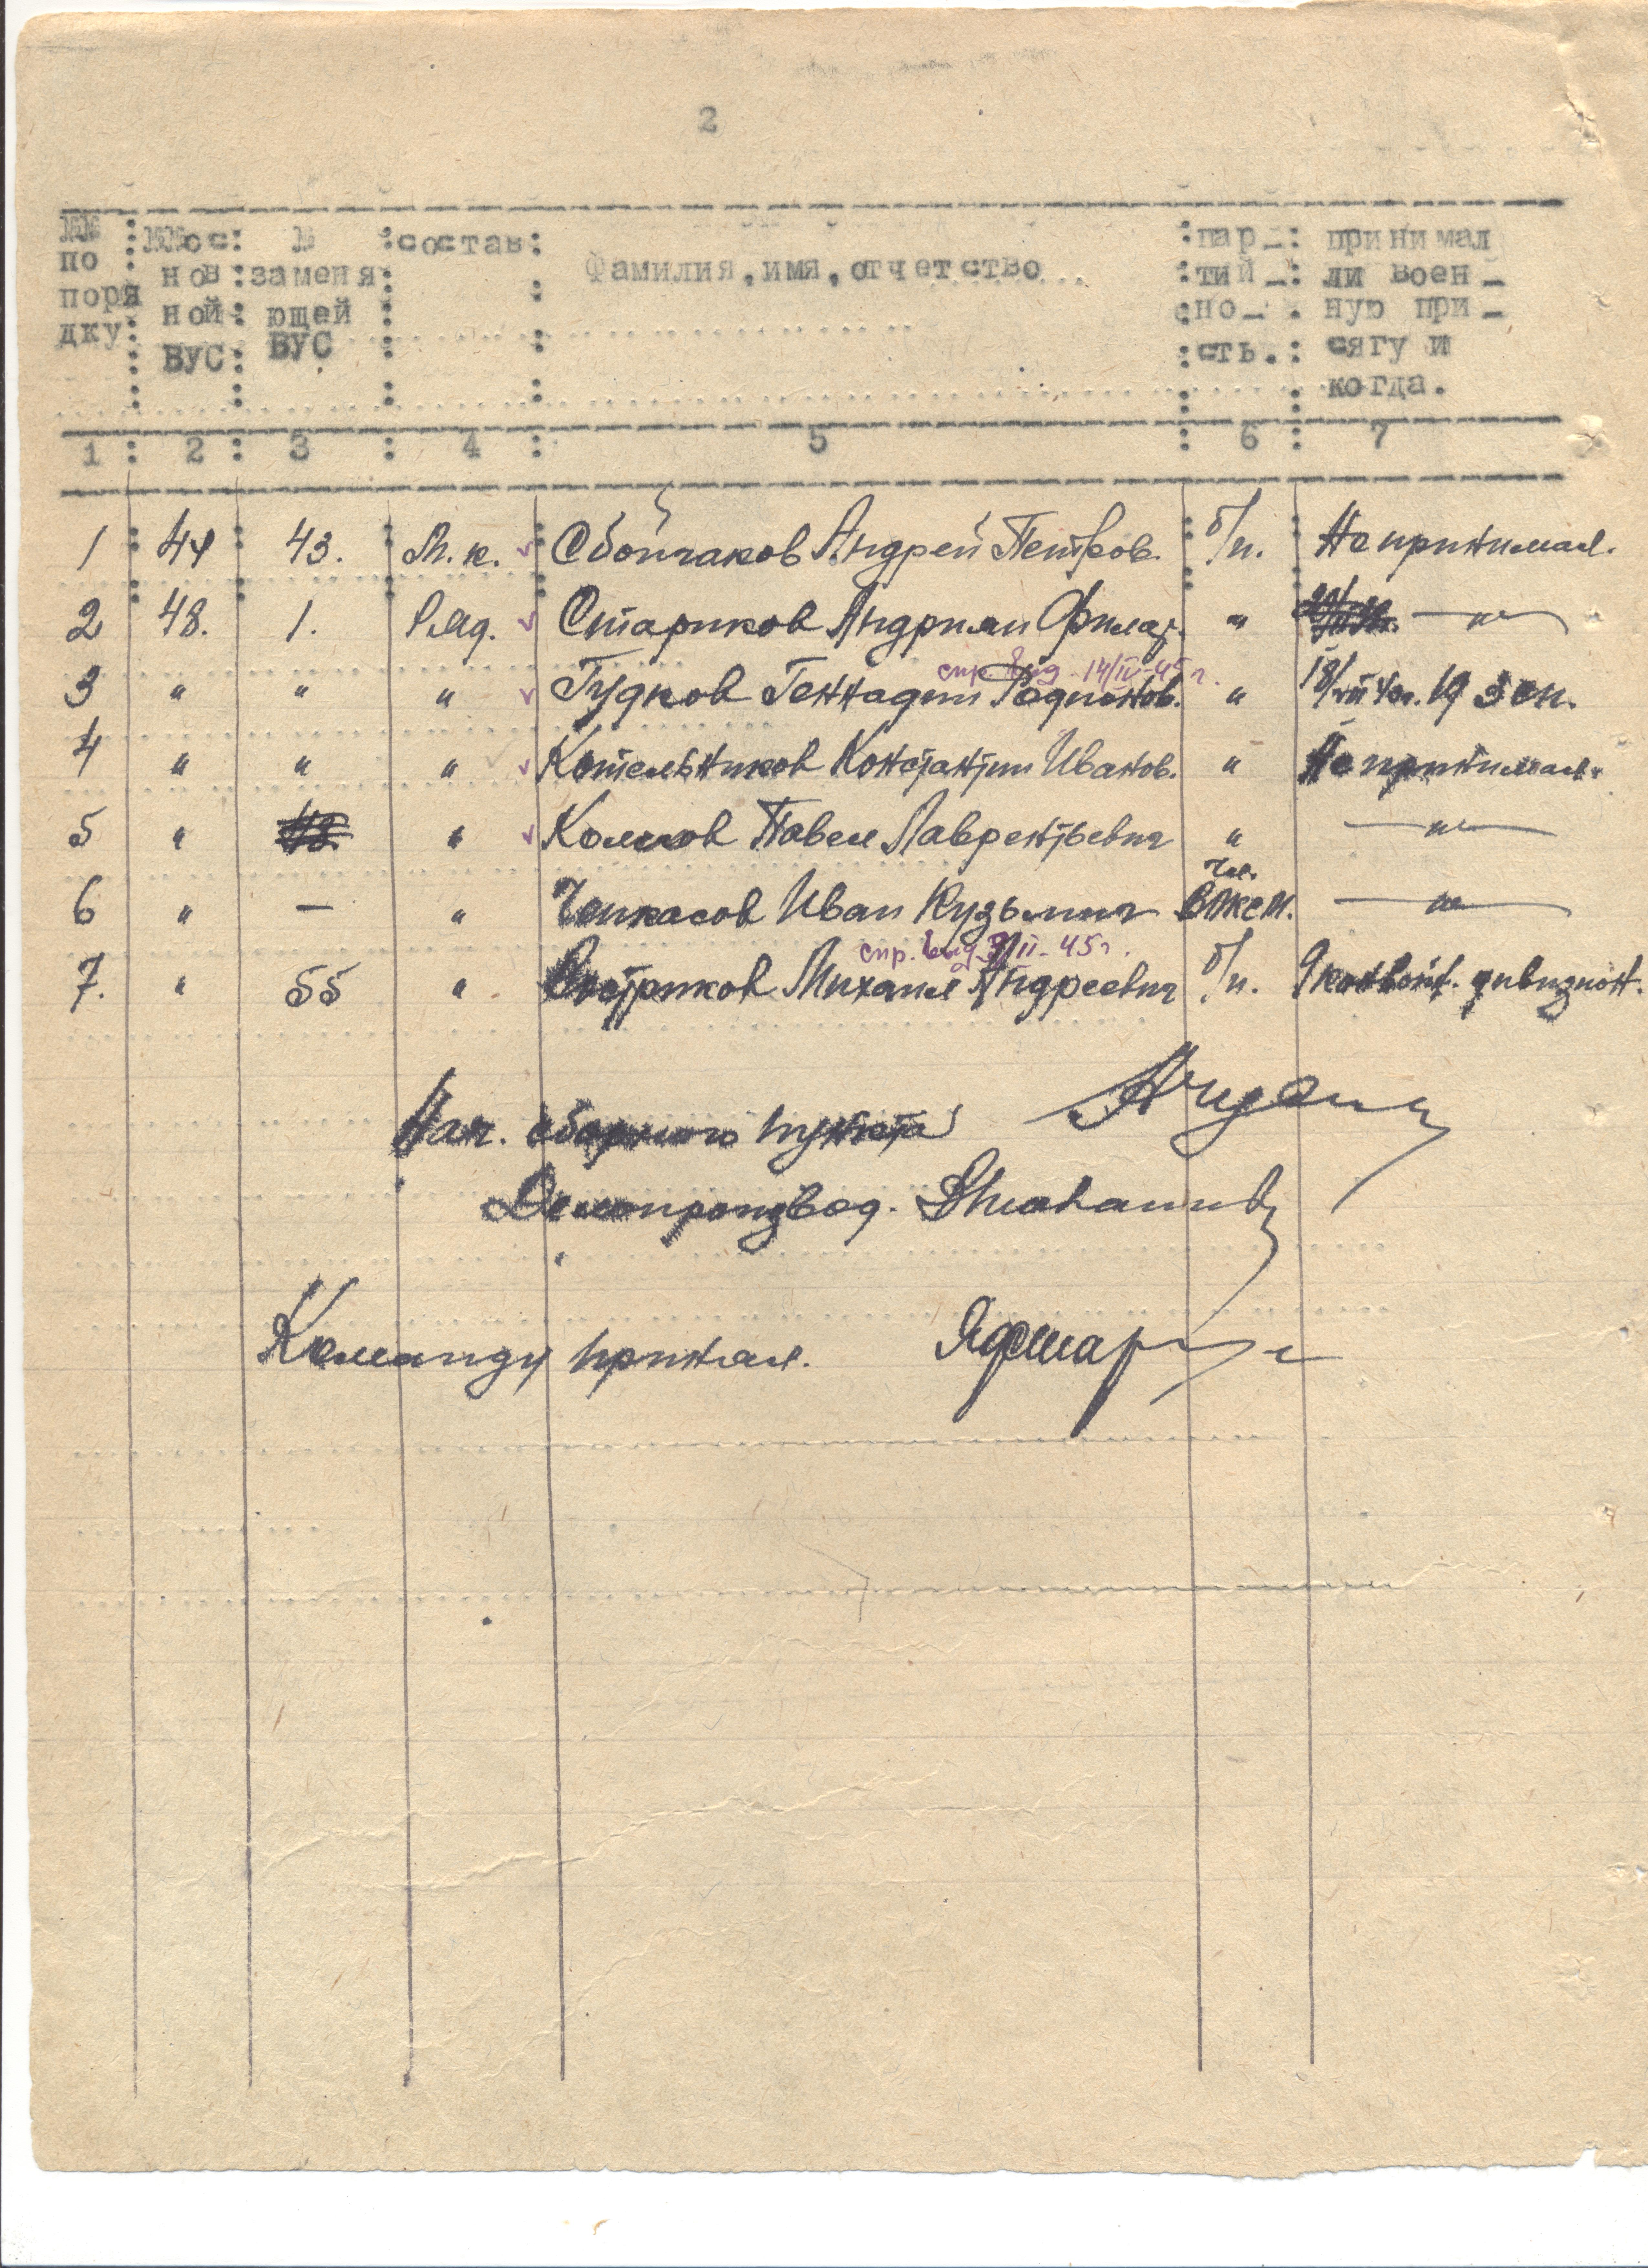 2
№№ по поря дку
№№ос нов ной ВУС
№ заменя ющей ВУС
состав
Фамилия, имя, отчетство
пар- тий- но- сть.
принимал ли воен- ную при- сягу и когда.
1 : 2 : 3 : 4 : 5 : 6 : 7
1 44 43. Мл. к. Сбойчаков Андрей Петров. б/п. Не принимал.
2 48. 1. Ряд. Стариков Андриян Филар. " — " —
спр. выд. 14/IV-45 г.
3 " " " Гудков Геннадий Родионов. " 19 зен.
4 " " " Котельников Константин Иванов. " Не принимал.
5 " " Колесов Павел Лаврентьевич " — " —
6 " — " Чепкасов Иван Кузьмич Чл. ВЛКСМ. — " —
спр. выд. II-45 г.
7. " 55 " Востриков Михаил Андреевич б/п. конвойн. дивизион.
Нач. сборного пункта
Делопроизвод.
Команду принял.